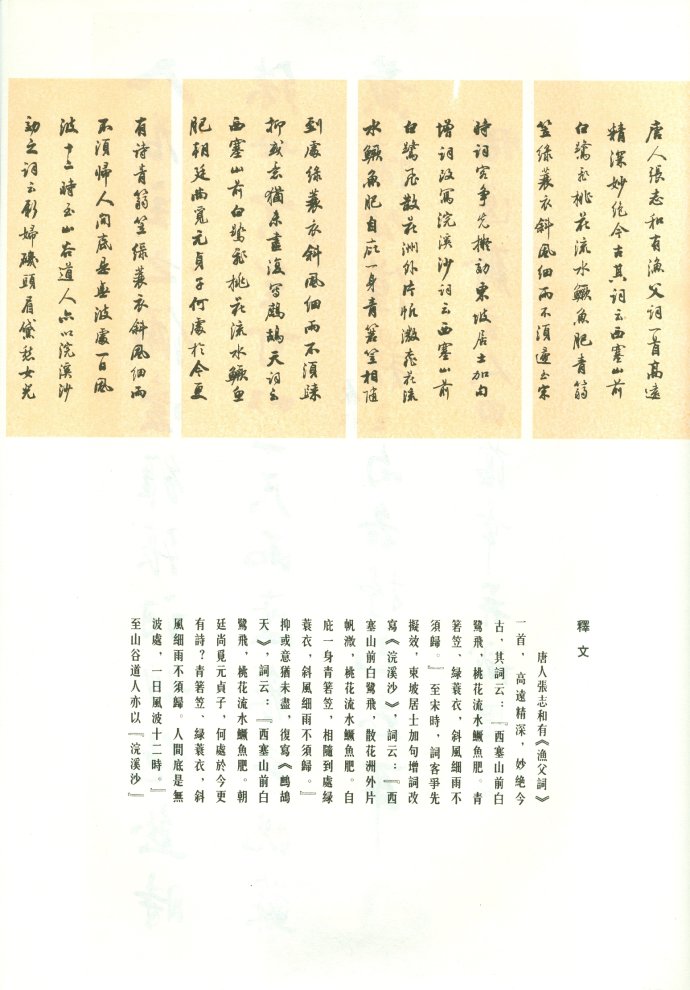 唐人張志和有漁父詞一首高遠
精深妙絕今古其詞云西塞山前
白鷺飛桃花流水鱖魚肥青篛
笠綠蓑衣斜風細雨不須歸至宋
時詞客爭先擬効東坡居士加句
增詞改寫浣溪沙詞云西塞山前
白鷺飛散花洲外片帆溦桃花流
水鱖魚肥自庇一身青箬笠相隨
到處綠蓑衣斜風細雨不須歸
抑或意猶未盡復寫鷓鴣天詞云
西塞山前白鷺飛桃花流水鱖魚
肥朝廷尚覓元貞子何處於今更
有詩青篛笠綠蓑衣斜風細雨
不須歸人間底是無波處一日風
波十二時至山谷道人亦以浣溪沙
効之詞云新婦磯頭眉黛愁女兒
釋文
唐人張志和有《漁父詞》
一首，高遠精深，妙绝今
古，其詞云：『西塞山前白
鷺飛，桃花流水鱖魚肥。青
箬笠、綠蓑衣，斜風細雨不
須歸。』至宋時，詞客爭先
擬效，東坡居士加句增詞改
寫《浣溪沙》，詞云：『西
塞山前白鷺飛，散花洲外片
帆溦，桃花流水鱖魚肥。自
庇一身青箬笠，相隨到處綠
蓑衣，斜風細雨不須歸。』
抑或意猶未盡，復寫《鷓鴣
天》，詞云：『西塞山前白
鷺飛，桃花流水鱖魚肥。朝
廷尚覓元貞子，何處於今更
有詩？青箬笠、綠蓑衣，斜
風細雨不須歸。人間底是無
波處，一日風波十二時。』
至山谷道人亦以『浣溪沙』